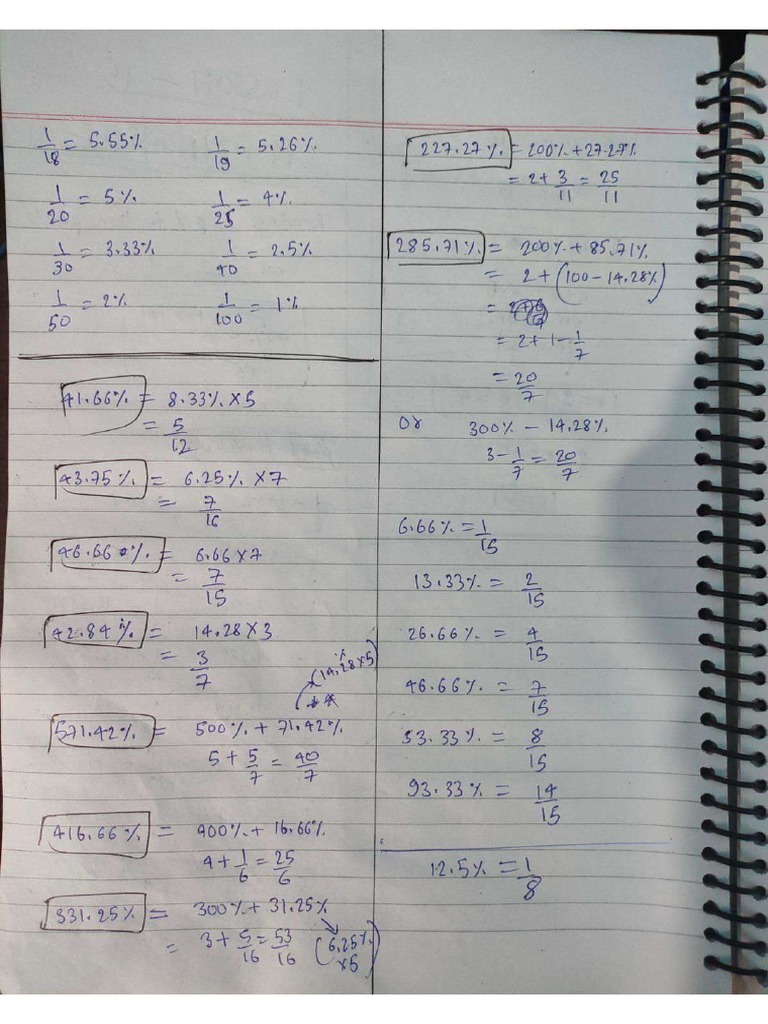 1/18 = 5.55% 1/19 = 5.26%
1/20 = 5% 1/25 = 4%
1/30 = 3.33% 1/40 = 2.5%
1/50 = 2% 1/100 = 1%
41.66% = 8.33% × 5
= 5/12
43.75% = 6.25% × 7
= 7/16
46.66% = 6.66 × 7
= 7/15
42.84% = 14.28 × 3
= 3/7
(14.28% × 5)
571.42% = 500% + 71.42%
5 + 5/7 = 40/7
416.66% = 400% + 16.66%
4 + 1/6 = 25/6
331.25% = 300% + 31.25%
= 3 + 5/16 = 53/16 (6.25% × 5)
227.27% = 200% + 27.27%
= 2 + 3/11 = 25/11
285.71% = 200% + 85.71%
= 2 + (100 - 14.28%)
=
= 2 + 1 - 1/7
= 20/7
or 300% - 14.28%
3 - 1/7 = 20/7
6.66% = 1/15
13.33% = 2/15
26.66% = 4/15
46.66% = 7/15
53.33% = 8/15
93.33% = 14/15
12.5% = 1/8